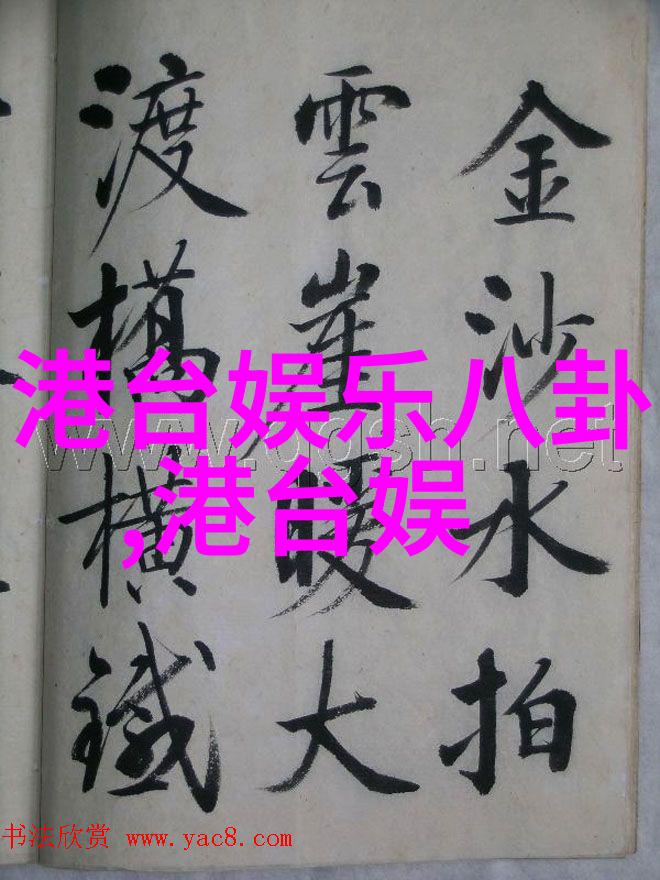 金沙水拍
雲崖暖大
渡橋横鐵
港台娱乐八卦
,港台娱
书法欣赏 www.yac8.com